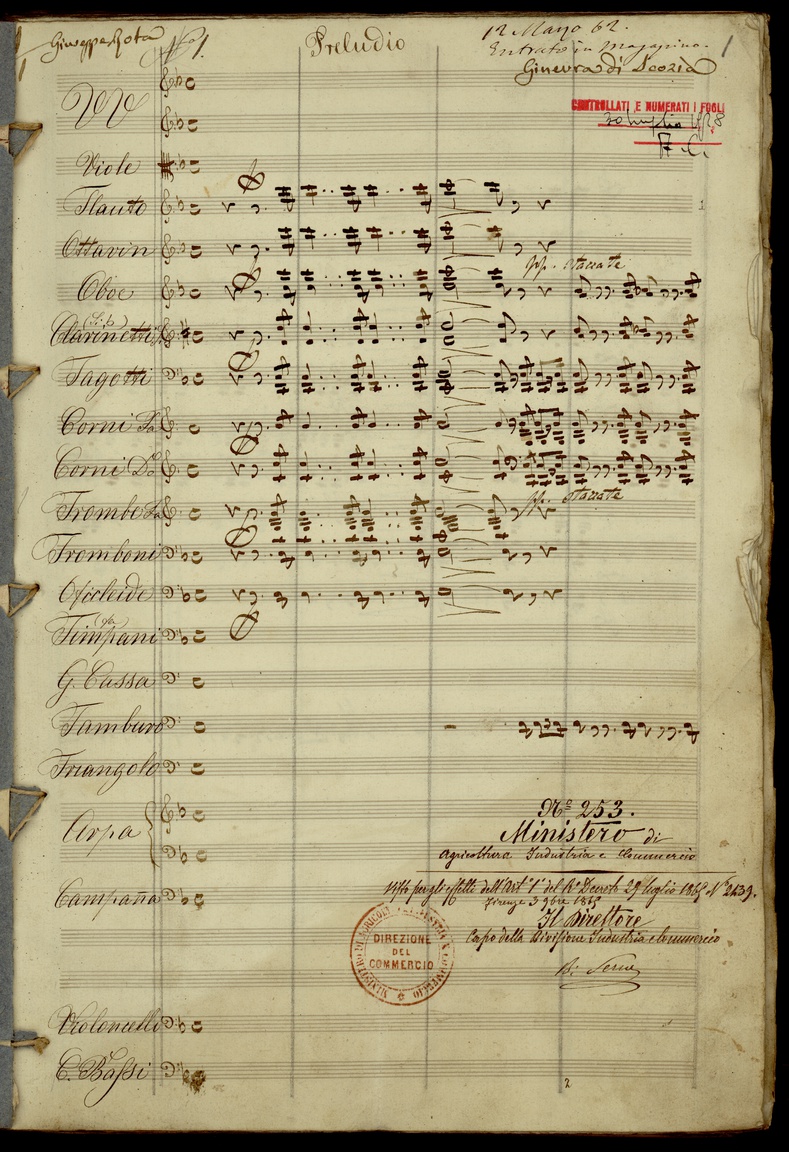 Giuseppe Rota
Nº 1.
Preludio
12 Marzo 62.
Entrato in Magazino.
1
Ginevra di Scozia
CONTROLLATI E NUMERATI I FOGLI
30 luglio 1928
VV
Viole
Flauto
Ottavin
pp. staccate
Oboe
Clarinetti
Fagotti
Corni Fa
Corni Do
pp. staccate
Trombe
Tromboni
Oficleide
Timpani
G. Cassa
Tamburo
Triangolo
Arpa
Nº 253.
Ministero di
Agricoltura Industria e Commercio
Campana
Visto per gli effetti dell'Art. 1º del R. Decreto 29 luglio 1865 Nº 2439.
Firenze 3 9bre 1865
Il Direttore
Capo della Divisione Industria e Commercio
DIREZIONE
DEL
COMMERCIO
Violoncelli
C. Bassi
2